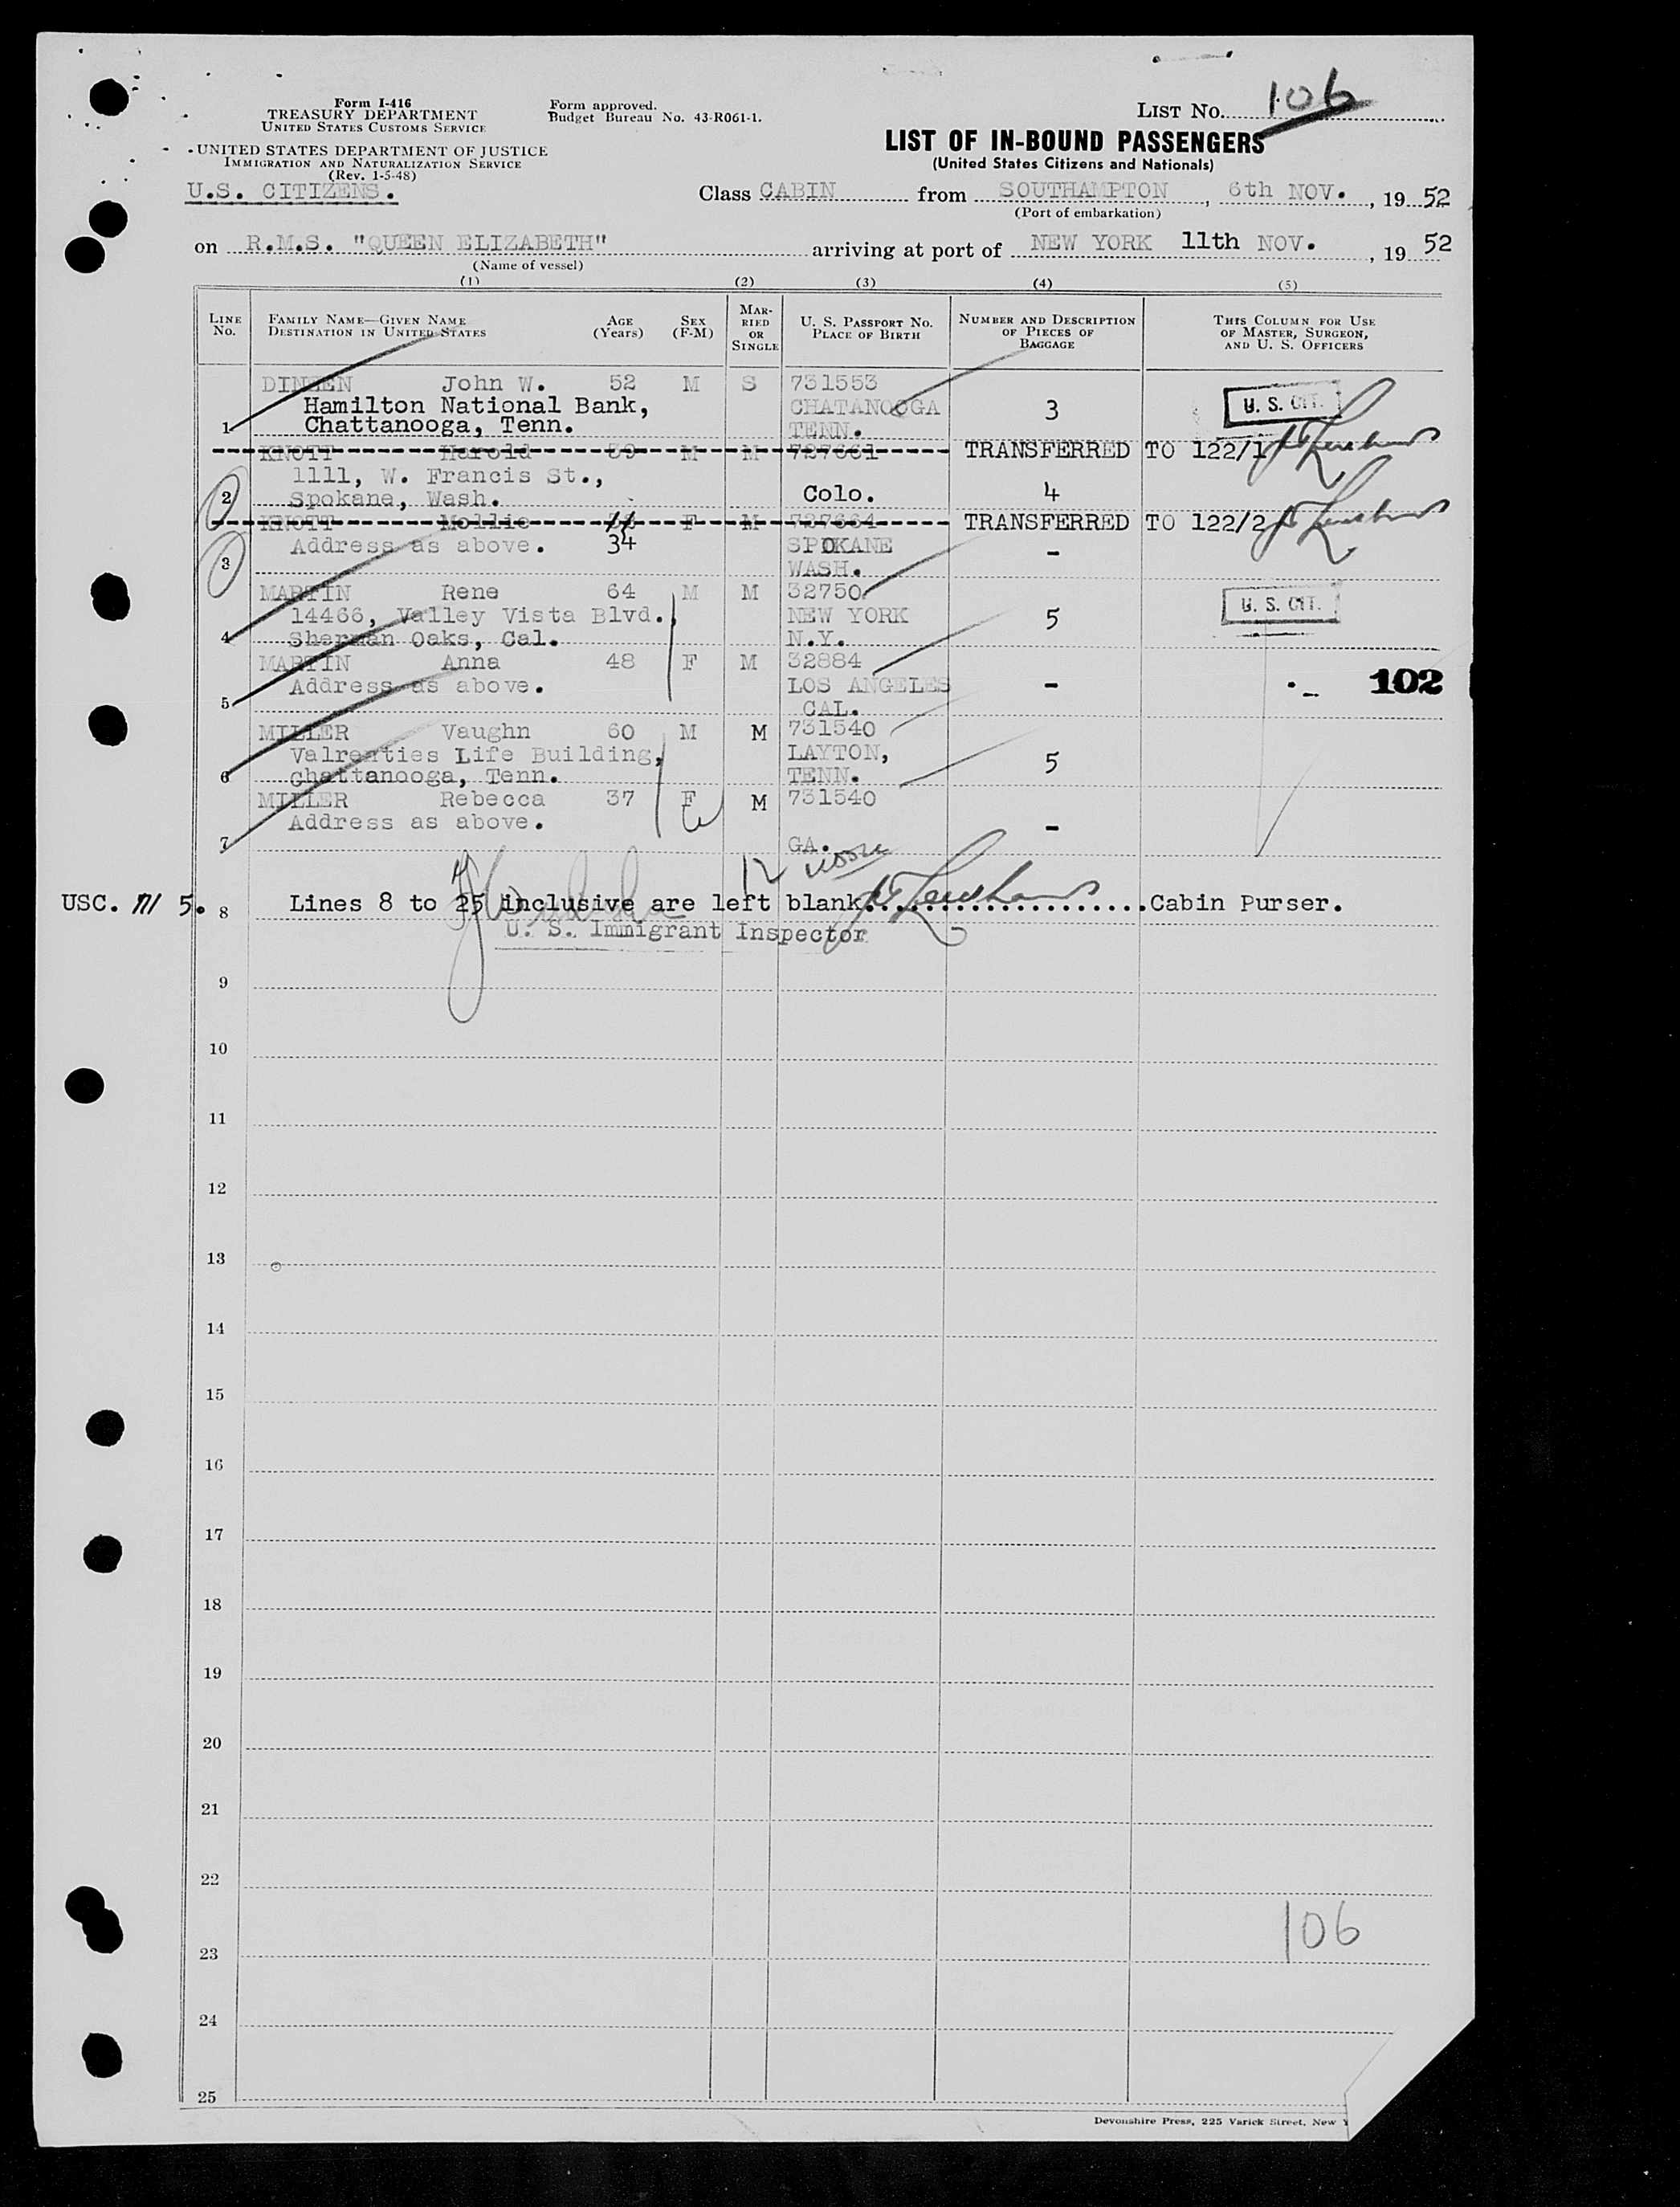 Form I-416
TREASURY DEPARTMENT
UNITED STATES CUSTOMS SERVICE
UNITED STATES DEPARTMENT OF JUSTICE
IMMIGRATION AND NATURALIZATION SERVICE
(Rev. 1-5-48)
Form approved.
Budget Bureau No. 43-R061-1.
LIST No. 106
LIST OF IN-BOUND PASSENGERS
(United States Citizens and Nationals)
U.S. CITIZENS.
Class CABIN from SOUTHAMPTON, 6th NOV., 19 52
(Port of embarkation)
on R.M.S. "QUEEN ELIZABETH" arriving at port of NEW YORK 11th NOV., 19 52
(Name of vessel)
(1) (2) (3) (4) (5)
LINE No. FAMILY NAME—GIVEN NAME DESTINATION IN UNITED STATES AGE (Years) SEX (F-M) MARRIED OR SINGLE U. S. PASSPORT No. PLACE OF BIRTH NUMBER AND DESCRIPTION OF PIECES OF BAGGAGE THIS COLUMN FOR USE OF MASTER, SURGEON, AND U. S. OFFICERS
John W. 52 M S 731553
Hamilton National Bank, CHATANOOGA 3 U. S. CIT.
1 Chattanooga, Tenn. TENN.
KNOTT Harold 39 M M 727661 TRANSFERRED TO 122/1
1111, W. Francis St.,
2 Spokane, Wash. Colo. 4
KNOTT Mollie F M 727664 TRANSFERRED TO 122/2
Address as above. 34 SPOKANE -
3 WASH.
MARTIN Rene 64 M M 32750
14466, Valley Vista Blvd., NEW YORK 5 U. S. CIT.
4 Sherman Oaks, Cal. N.Y.
MARTIN Anna 48 F M 32884
Address as above. LOS ANGELES - 102
5 CAL.
MILLER Vaughn 60 M M 731540
Life Building, LAYTON, 5
6 Chattanooga, Tenn. TENN.
MILLER Rebecca 37 F M 731540
Address as above. -
7 GA.
12
USC. 5. 8 Lines 8 to 25 inclusive are left blank....................Cabin Purser.
U. S. Immigrant Inspector
9
10
11
12
13
14
15
16
17
18
19
20
21
22
106
23
24
25
Devonshire Press, 225 Varick Street, New Y